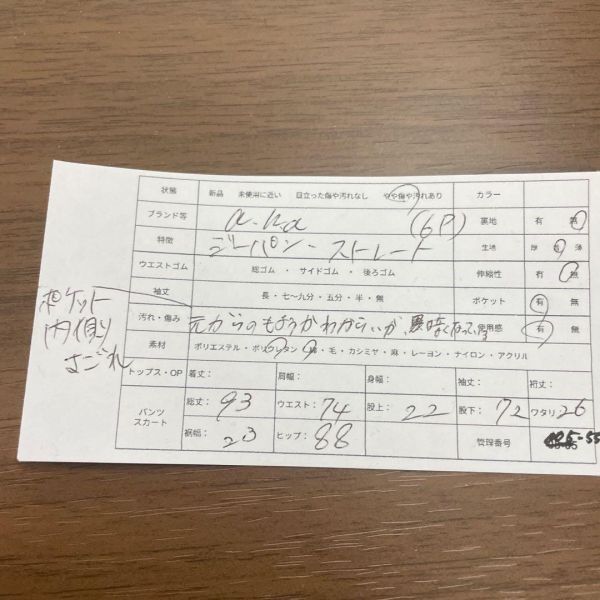 状態 新品 未使用に近い 目立った傷や汚れなし やや傷や汚れあり カラー
ブランド等 a.n.a (6P) 裏地 有 無
特徴 ジーパン・ストレート 生地 厚 普 薄
ウエストゴム 総ゴム ・ サイドゴム ・ 後ろゴム 伸縮性 有 無
袖丈 長・七〜九分・五分・半・無 ポケット 有 無
ポケット
内側
よごれ
汚れ・傷み 元からのもようかわからないが、黒くなっている 使用感 有 無
素材 ポリエステル・ポリウレタン・綿・毛・カシミヤ・麻・レーヨン・ナイロン・アクリル
トップス・OP 着丈: 肩幅: 身幅: 袖丈: 裄丈:
パンツ
スカート
総丈: 93 ウエスト: 74 股上: 22 股下: 72 ワタリ 26
裾幅: 23 ヒップ: 88 管理番号 -55